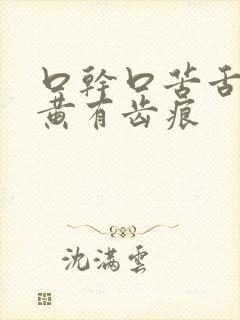 口幹口苦舌
黄有齿痕
沈满雲